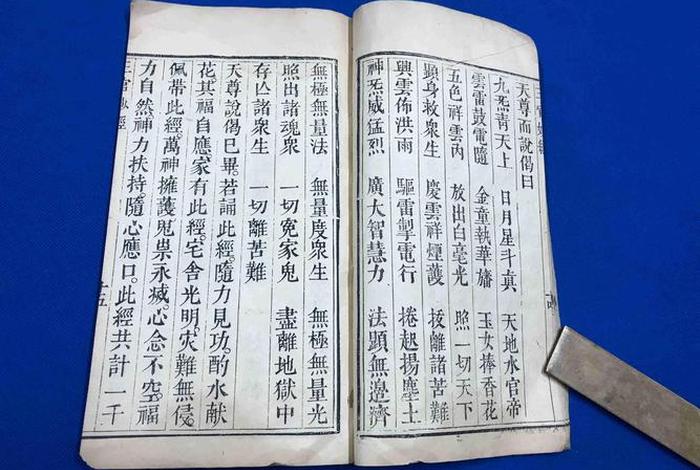 天尊而說偈曰
九炁青天上　日月星斗眞　天地水官帝
雲雷鼓電隨　金童執華旛　玉女捧香花
五色祥雲內　放出白毫光　照一切天下
顯身救衆生　慶雲祥煙護　拔離諸苦難
興雲佈洪雨　驅雷掣電行　捲起揚塵土
神炁威猛烈　廣大智慧力　法顯無邊濟
無極無量法　無量度衆生　無極無量光
照出諸魂衆　一切冤家鬼　盡離地獄中
存亾諸衆生　一切離苦難
天尊說偈巳畢。若誦此經。隨力見功。酌水献
花。其福自應。家有此經。宅舍光明。灾難無侵。
佩帶此經。萬神擁護。鬼祟永滅。心念不空。福
力自然。神力扶持。隨心應口。此經共計一千
三官妙經
十五